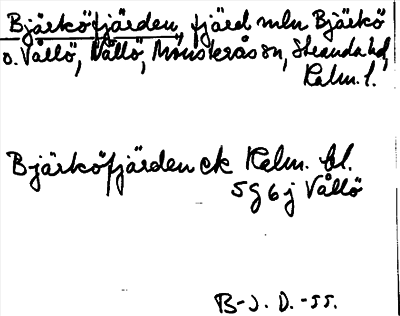 Bjärköfjärden, fjärd mln Bjärkö
o. Vållö, Vållö, Mönsterås sn, Stranda hd,
Kalm. l.
Bjärköfjärden ek Kalm. bl.
5 G 6 j Vållö
B-J. D. -55.